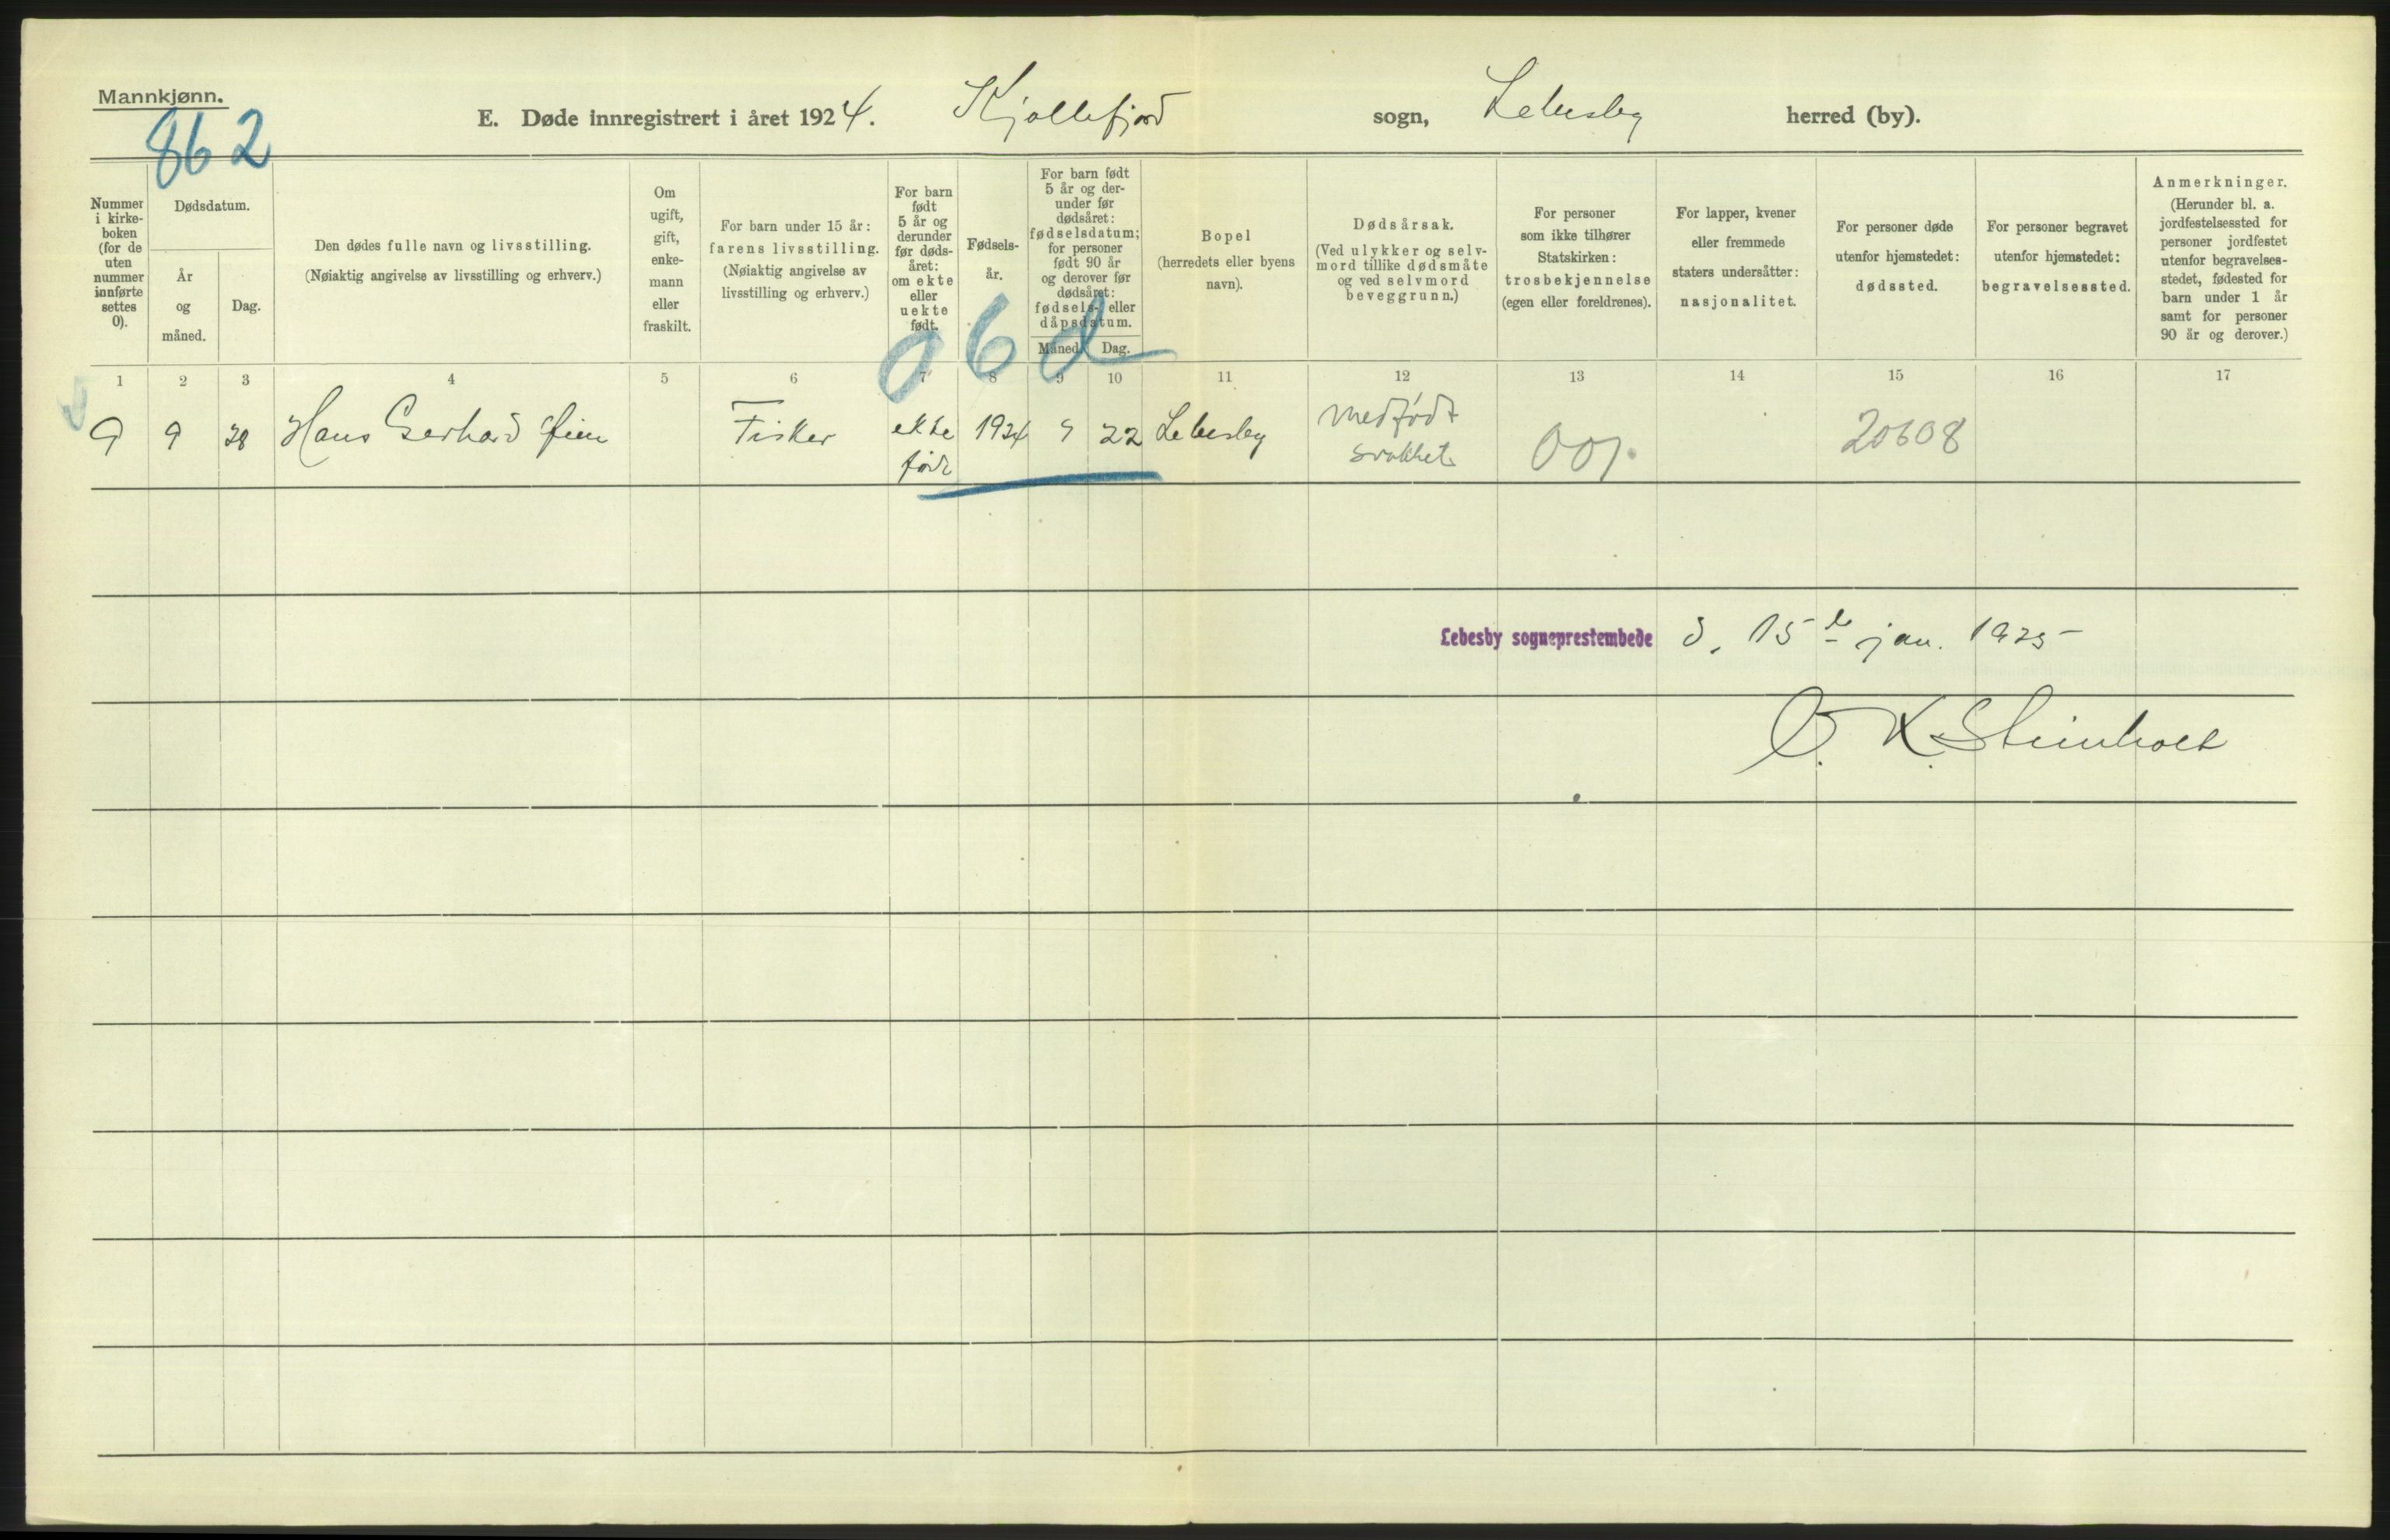 Mannkjønn.
862
E. Døde innregistrert i året 1924. Kjøllefjord sogn, Lebesby herred (by).
Nummer i kirke-
boken
(for de
uten
nummer
innførte
settes
0).
Dødsdatum.
År
og
måned.
Dag.
Den dødes fulle navn og livsstilling.
(Nøiaktig angivelse av livsstilling og erhverv.)
Om
ugift,
gift,
enke-
mann
eller
fraskilt.
For barn under 15 år:
farens livsstilling.
(Nøiaktig angivelse av
livsstilling og erhverv.)
For barn
født
5 år og
derunder
før døds-
året:
om ekte
eller
uekte
født.
Fødsels-
år.
For barn født
5 år og der-
under før
dødsåret:
fødselsdatum;
for personer
født 90 år
og derover før
dødsåret:
fødsels- eller
dåpsdatum.
Måned. Dag.
Bopel
(herredets eller byens
navn).
Dødsårsak.
(Ved ulykker og selv-
mord tillike dødsmåte
og ved selvmord
beveggrunn.)
For personer
som ikke tilhører
Statskirken:
trosbekjennelse
(egen eller foreldrenes).
For lapper, kvener
eller fremmede
staters undersåtter:
nasjonalitet.
For personer døde
utenfor hjemstedet:
dødssted.
For personer begravet
utenfor hjemstedet:
begravelsessted.
Anmerkninger.
(Herunder bl. a.
jordfestelsessted for
personer jordfestet
utenfor begravelses-
stedet, fødested for
barn under 1 år
samt for personer
90 år og derover.)
06d
1 2 3 4 5 6 7 8 9 10 11 12 13 14 15 16 17
9 9 28 Hans Gerhard Fisker ekte 1924 9 22 Lebesby medfødt
født svakhet 20608
Lebesby sogneprestembede d. 15de jan. 1925
O. K. Steinholt